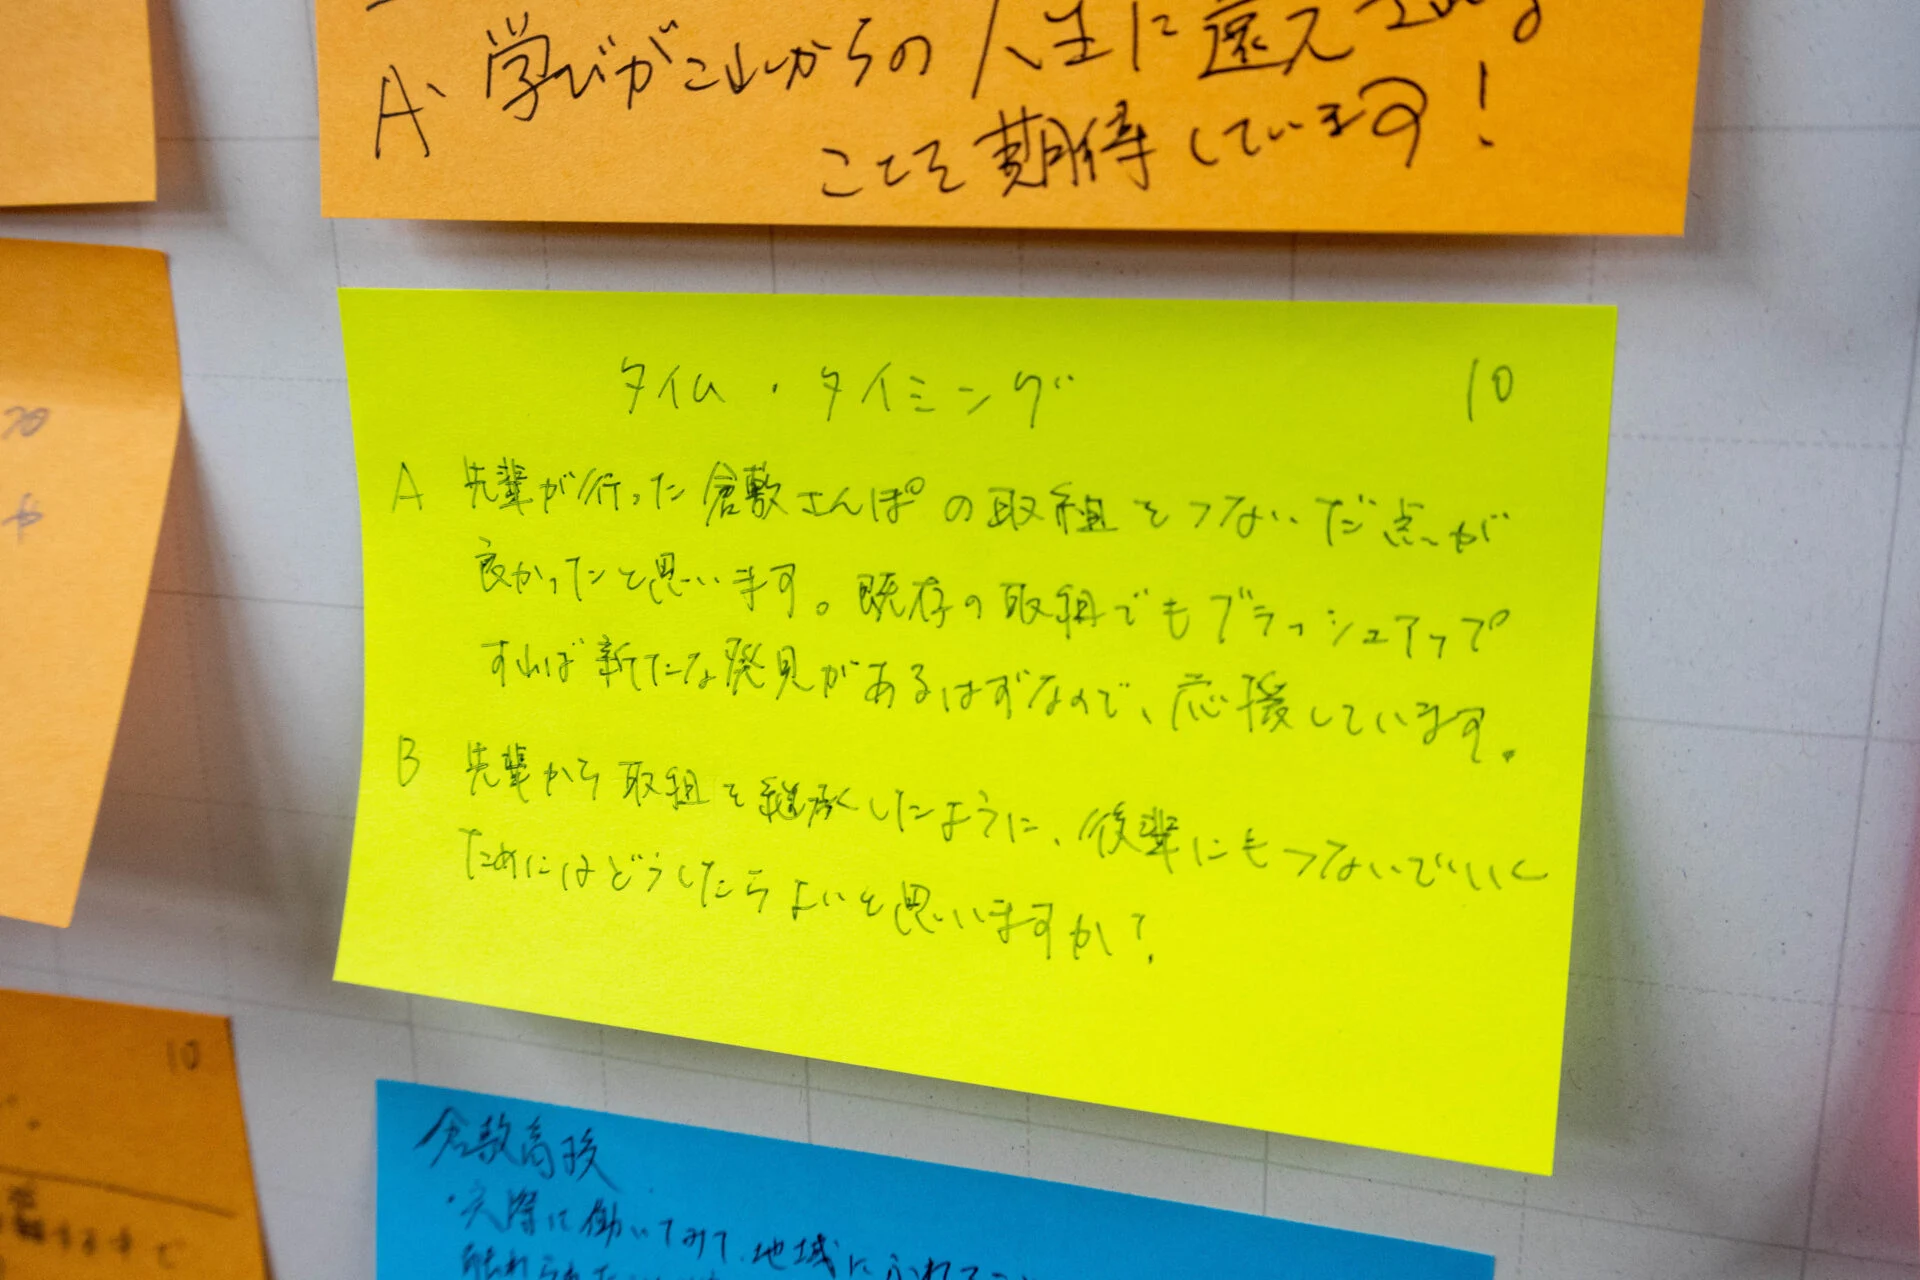 A、学びがこれからの人生に
ことを期待しています!
タイム・タイミング 10
A 先輩が行った倉敷さんぽの取組をつないだ点が
良かったと思います。既存の取組でもブラッシュアップ
すれば新たな発見があるはずなので、応援しています。
B 先輩から取組を継承したように、後輩にもつないでいく
ためにはどうしたらよいと思いますか?
10
倉敷高校
・実際に働いてみて、地域にふれて